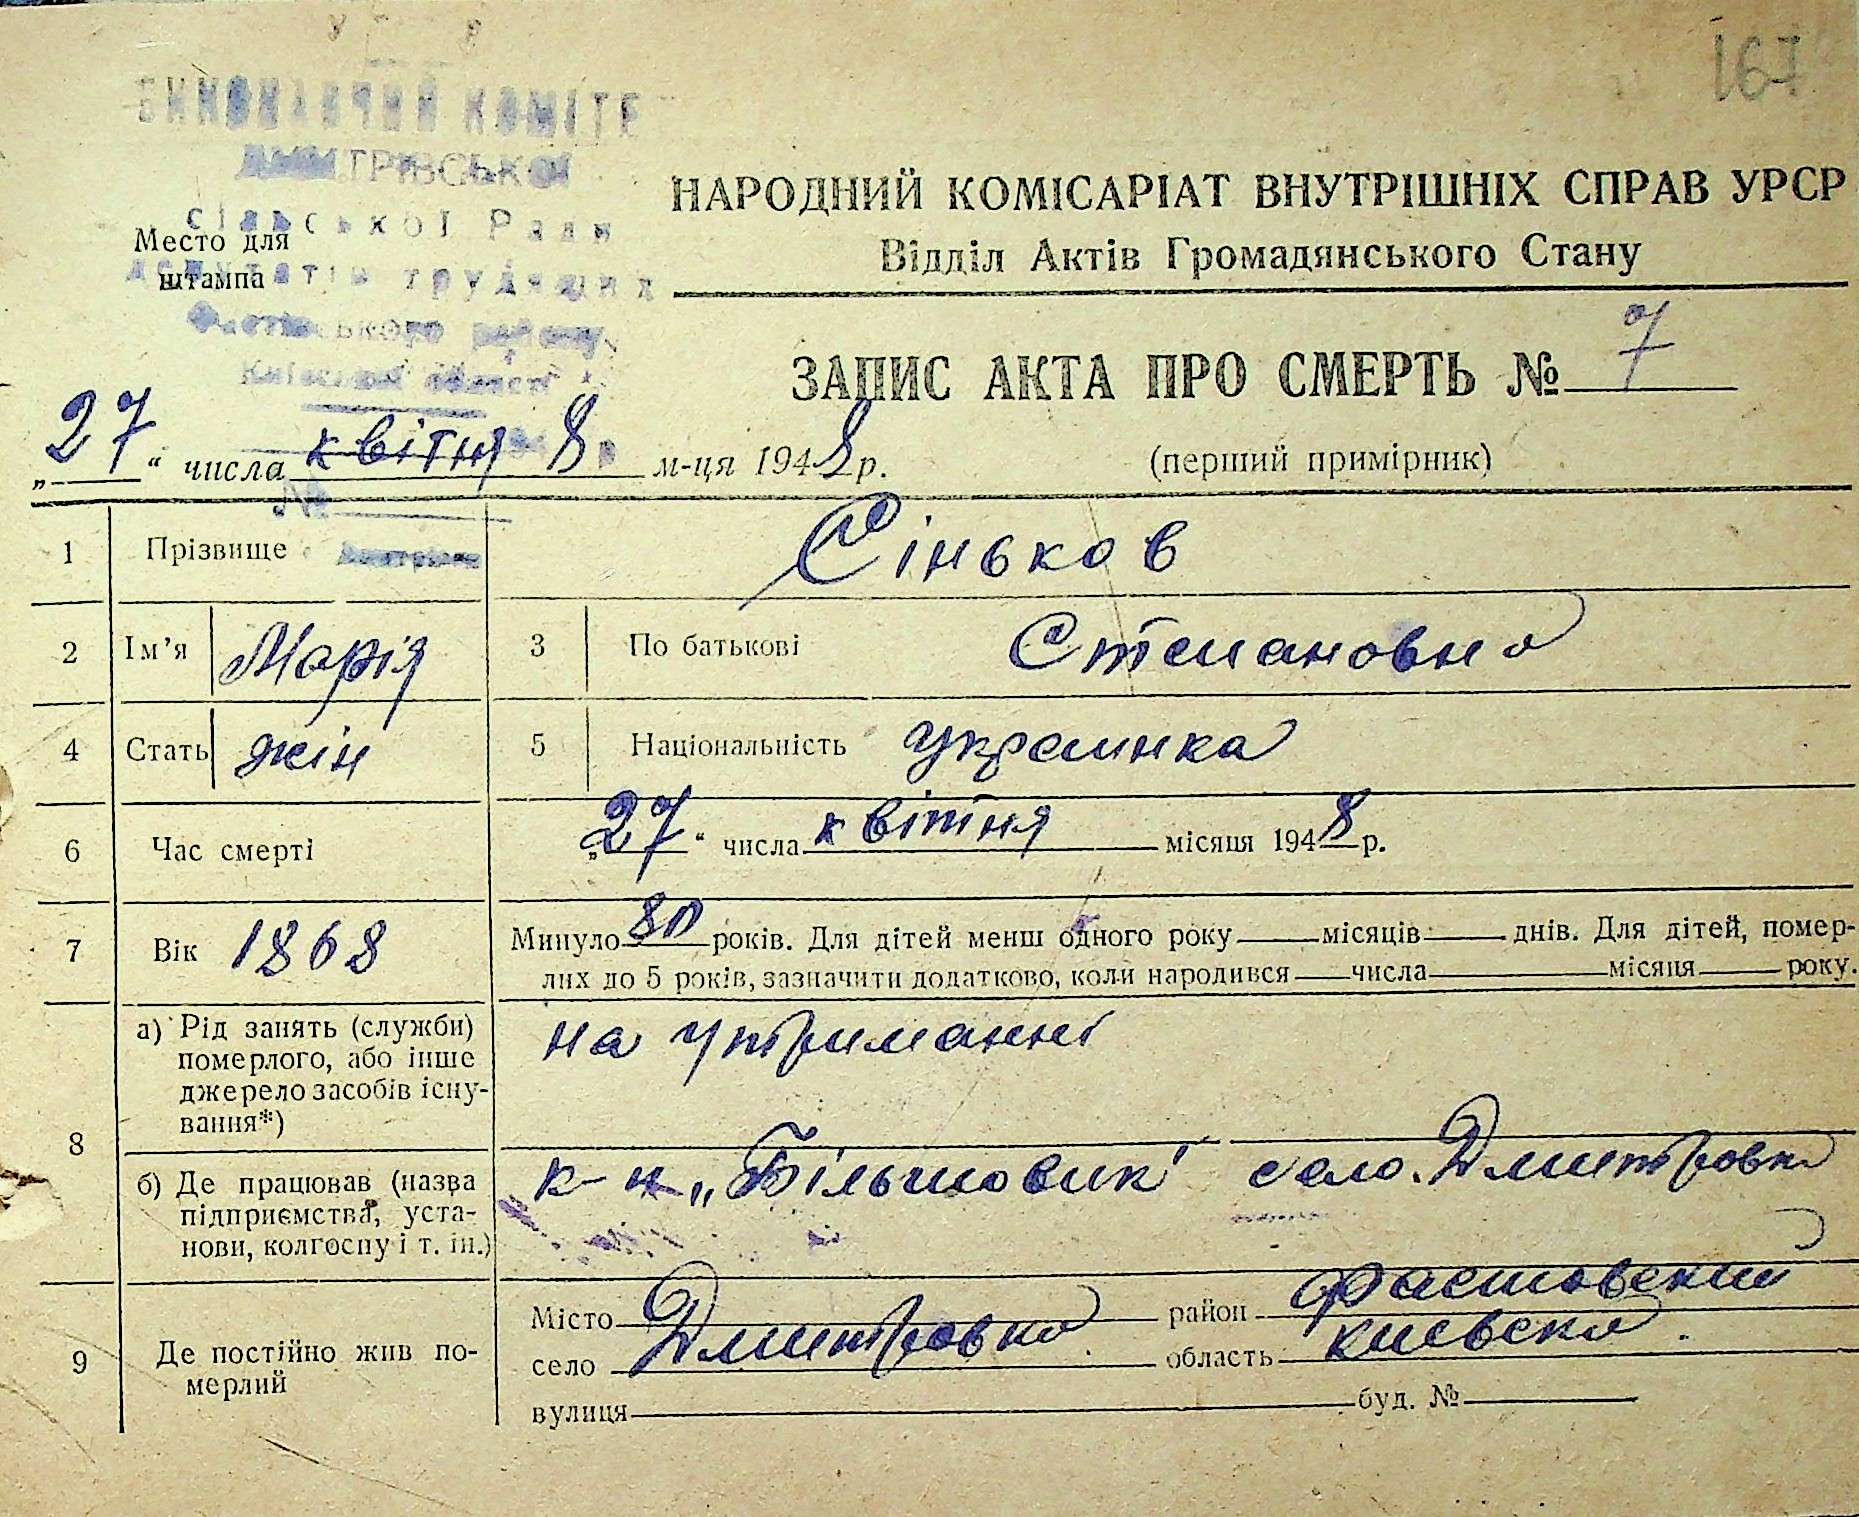 167
ВИКОНАВЧИЙ КОМІТЕ
ДМИТРІВСЬКОЇ
сільської Ради
депутатів трудящих
Фастівського району
Київської області
Место для
штампа
НАРОДНИЙ КОМІСАРІАТ ВНУТРІШНІХ СПРАВ УРСР
Відділ Актів Громадянського Стану
ЗАПИС АКТА ПРО СМЕРТЬ № 7
„27“ числа квітня 8 м-ця 1948 р.
(перший примірник)
№
1 Прізвище Сіньков
2 Ім’я Марія 3 По батькові Степановна
4 Стать жін 5 Національність украинка
6 Час смерті „27“ числа квітня місяця 1948 р.
7 Вік 1868 Минуло 80 років. Для дітей менш одного року місяців днів. Для дітей, помер-
лих до 5 років, зазначити додатково, коли народився числа місяця року.
8 а) Рід занять (служби) померлого, або інше джерело засобів існу-вання*) на утриманні
б) Де працював (назва підприємства, уста-нови, колгоспу і т. ін.) к-н „Більшовик“ село. Дмитровка
9 Де постійно жив по-мерлий
Місто район Фастовский
село Дмитровка область киевска.
вулиця буд. №